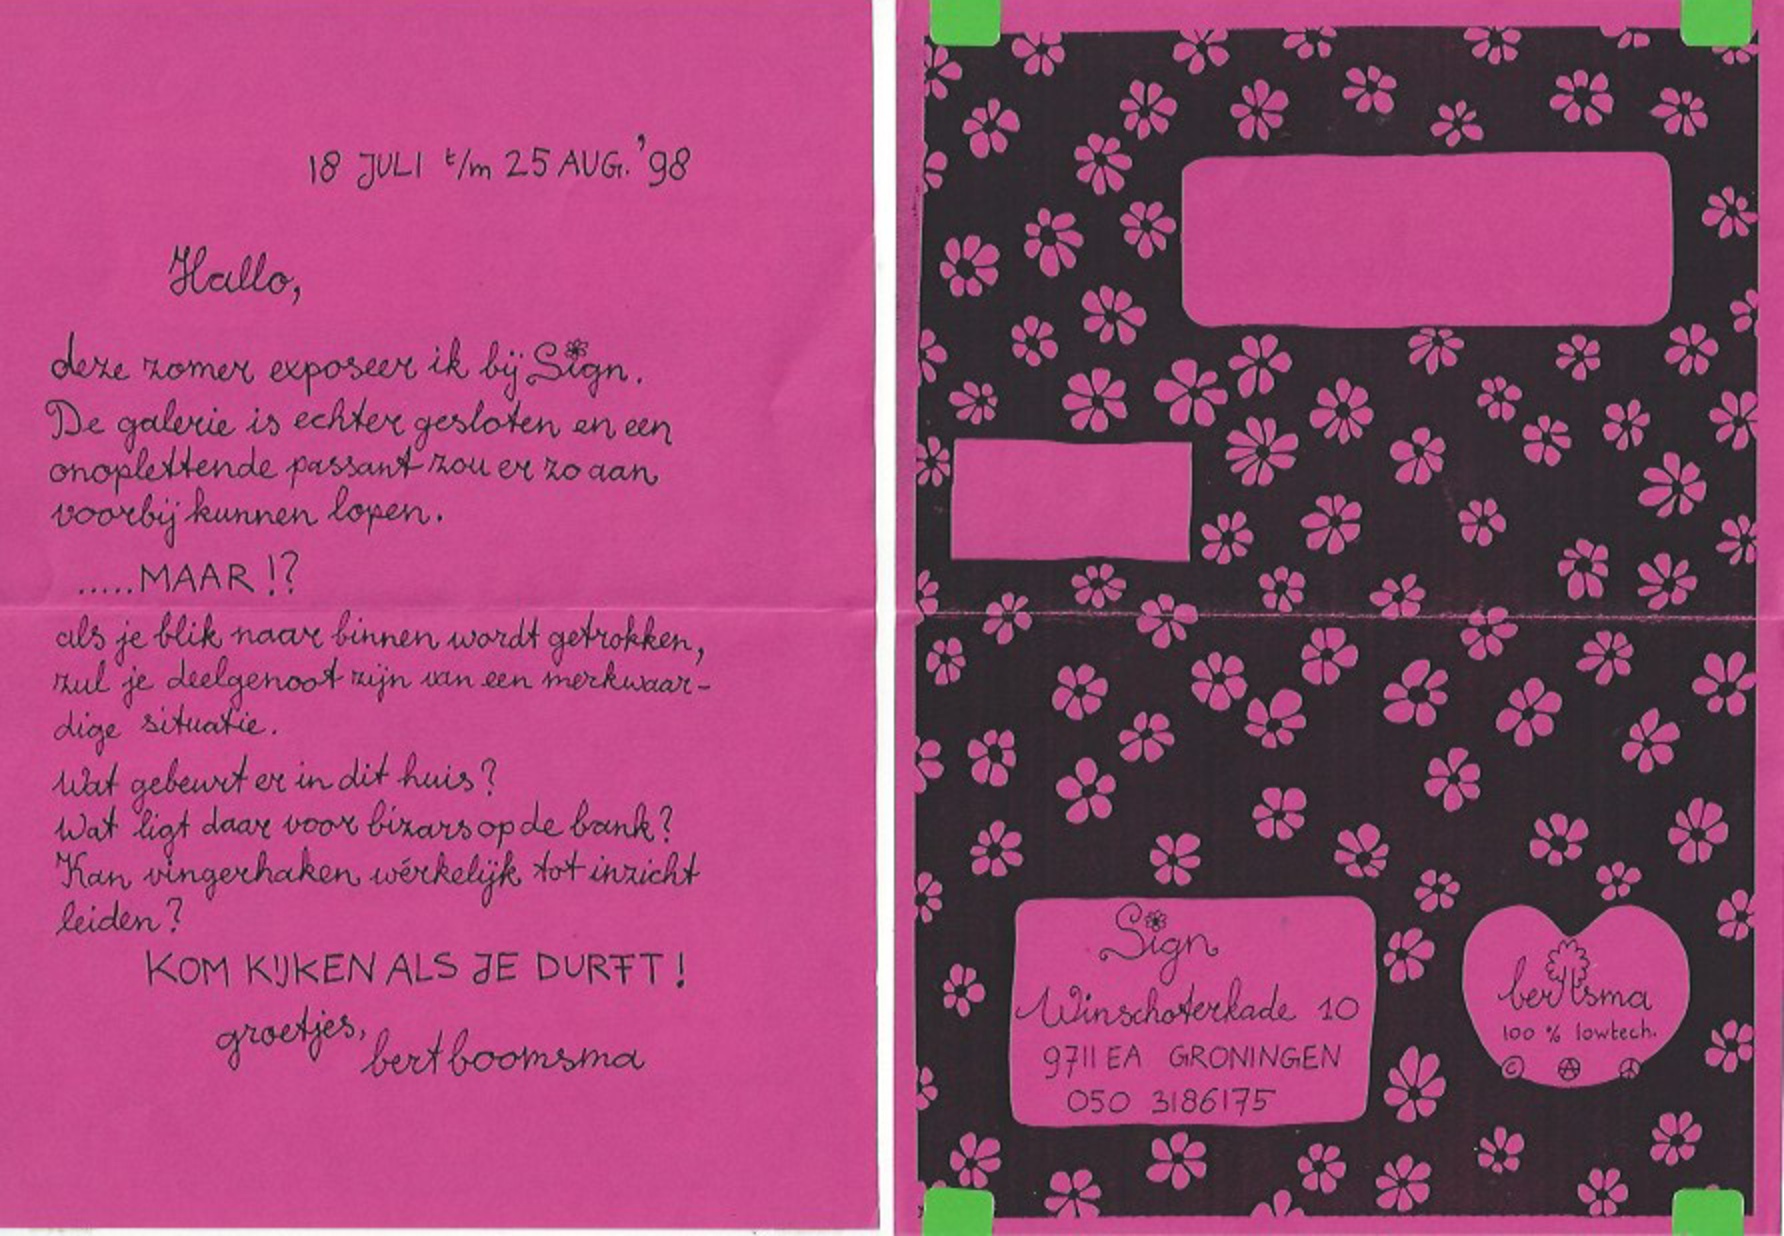 18 JULI t/m 25 AUG. '98
Hallo,
deze zomer exposeer ik bij Sign.
De galerie is echter gesloten en een
onoplettende passant zou er zo aan
voorbij kunnen lopen.
.....MAAR !?
als je blik naar binnen wordt getrokken,
zul je deelgenoot zijn van een merkwaar-
dige situatie.
Wat gebeurt er in dit huis?
Wat ligt daar voor bizars op de bank?
Kan vingerhaken wérkelijk tot inzicht
leiden?
KOM KIJKEN ALS JE DURFT!
groetjes,
bert boomsma
Sign
Winschoterkade 10
9711 EA GRONINGEN
050 3186175
bertsma
100 % lowtech.
© Ⓐ ☮